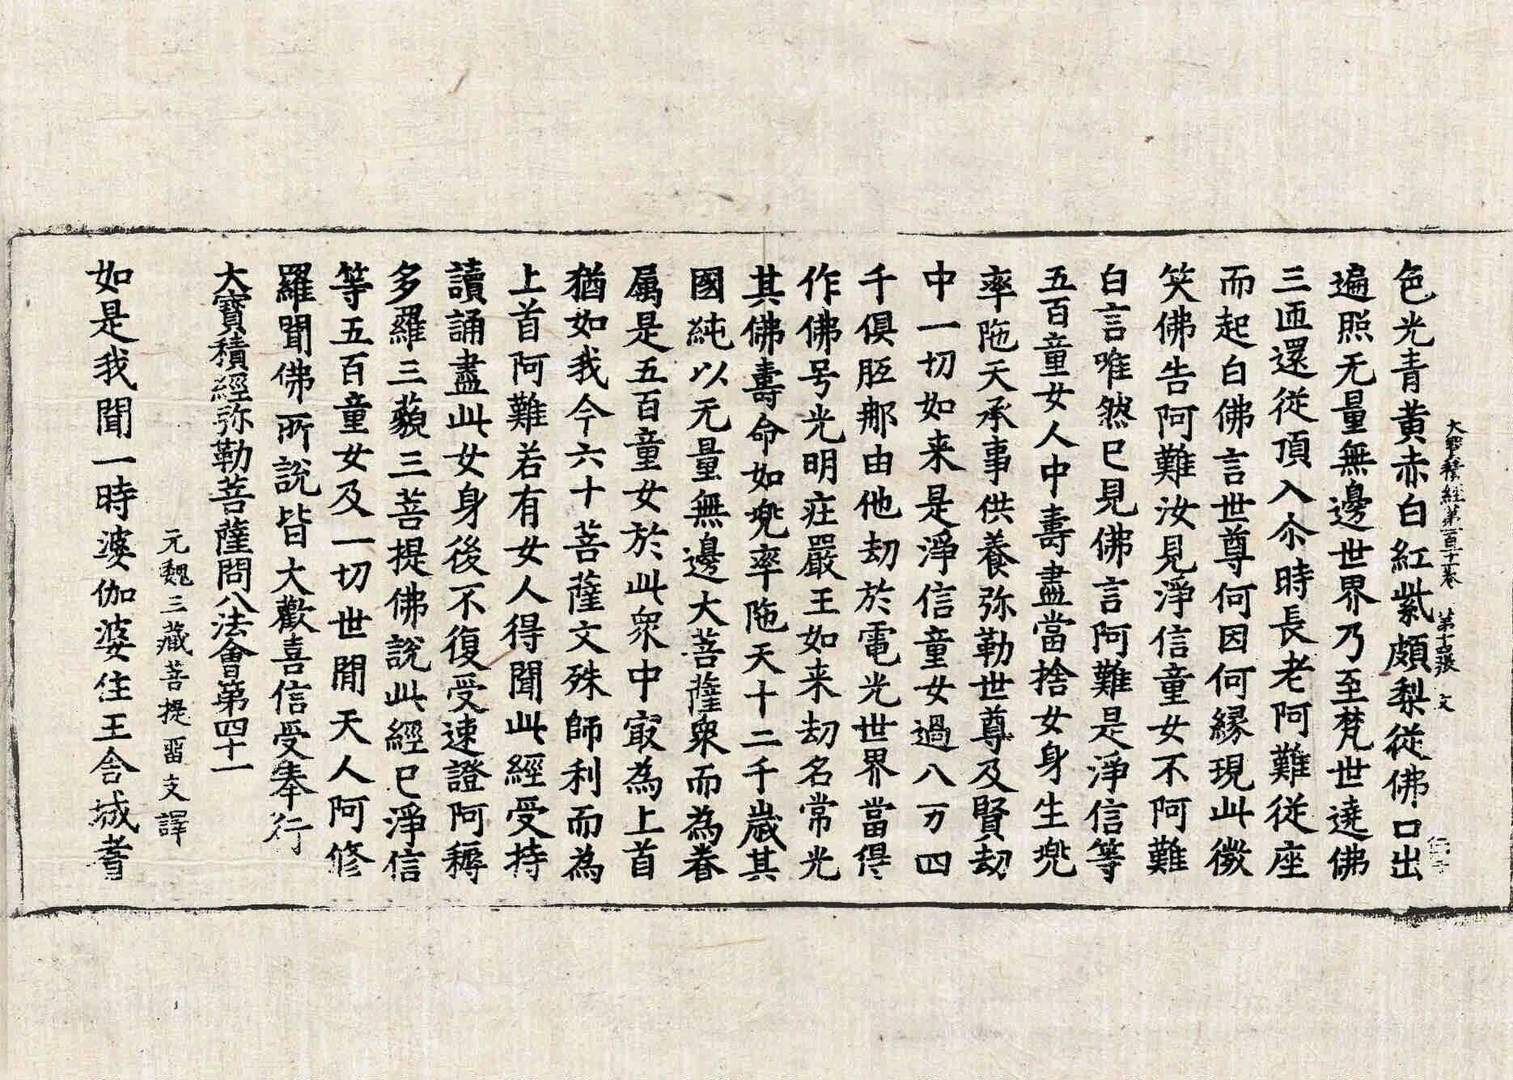 大寶積經第一百十一卷 第十五張 文
色光青黃赤白紅紫頗梨從佛口出
遍照无量無邊世界乃至梵世遶佛
三匝還從頂入尒時長老阿難從座
而起白佛言世尊何因何緣現此微
笑佛告阿難汝見淨信童女不阿難
白言唯然已見佛言阿難是淨信等
五百童女人中壽盡當捨女身生兠
率陁天承事供養弥勒世尊及賢劫
中一切如来是淨信童女過八万四
千俱胝那由他劫於電光世界當得
作佛号光明莊嚴王如来劫名常光
其佛壽命如兠率陁天十二千歲其
國純以无量無邊大菩薩衆而為眷
属是五百童女於此衆中㝡為上首
猶如我今六十菩薩文殊師利而為
上首阿難若有女人得聞此經受持
讀誦盡此女身後不復受速證阿耨
多羅三藐三菩提佛說此經已淨信
等五百童女及一切世間天人阿修
羅聞佛所說皆大歡喜信受奉行
大寶積經弥勒菩薩問八法會第四十一
元魏三藏菩提畱支譯
如是我聞一時婆伽婆住王舍城耆